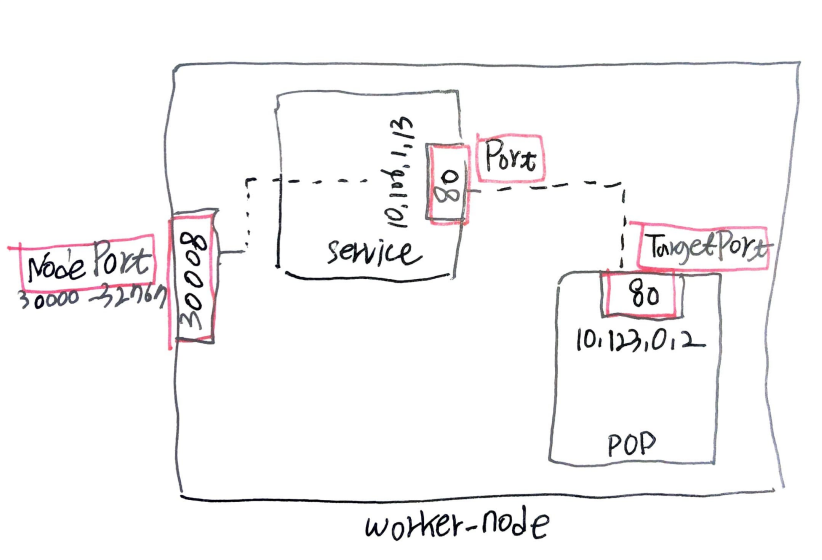 Node Port
30000 -32767
30008
10.106.1.13
80
Port
service
TargetPort
80
10.123.0.2
POD
worker-node